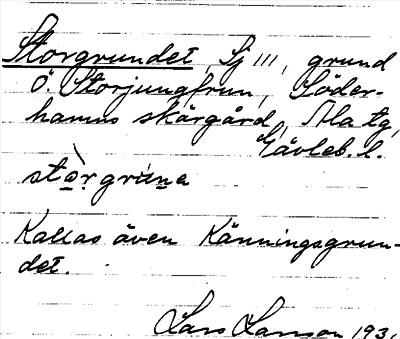 Storgrundet, Sj III, grund
Ö. Storjungfrun, Söder-
hamns skärgård, Ala tg,
Gävleb. l.
stòrgruna
Kallas även Känningsgrun-
det.
Lars Larsson 193